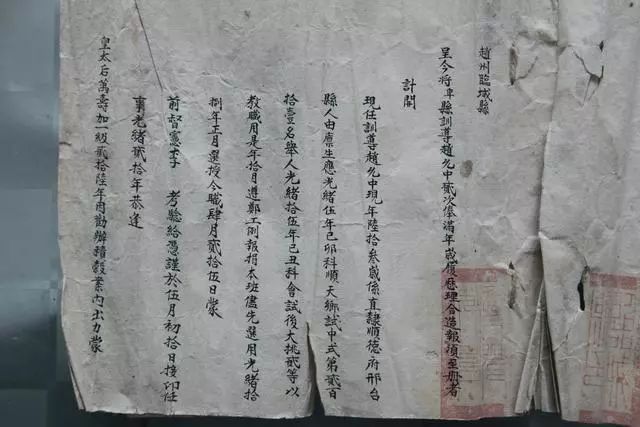 趙州臨城縣
呈今將卑縣訓導趙允中貳次俸滿年歲履歷理合造報須至册者
計開
現任訓導趙允中現年陸拾叁歲係直隸順德府邢台
縣人由廩生應光緒伍年己卯科順天鄉試中式第貳百
拾壹名舉人光緒拾伍年己丑科會試後大挑貳等以
教職用是年拾月遵鄭工例報捐本班儘先選用光緒拾
捌年正月選授今職肆月貳拾伍日蒙
前督憲李 考驗給憑謹於伍月初拾日接印任
事光緒貳拾年恭逢
皇太后萬壽加一級貳拾陸年因勸辦積穀案內出力蒙